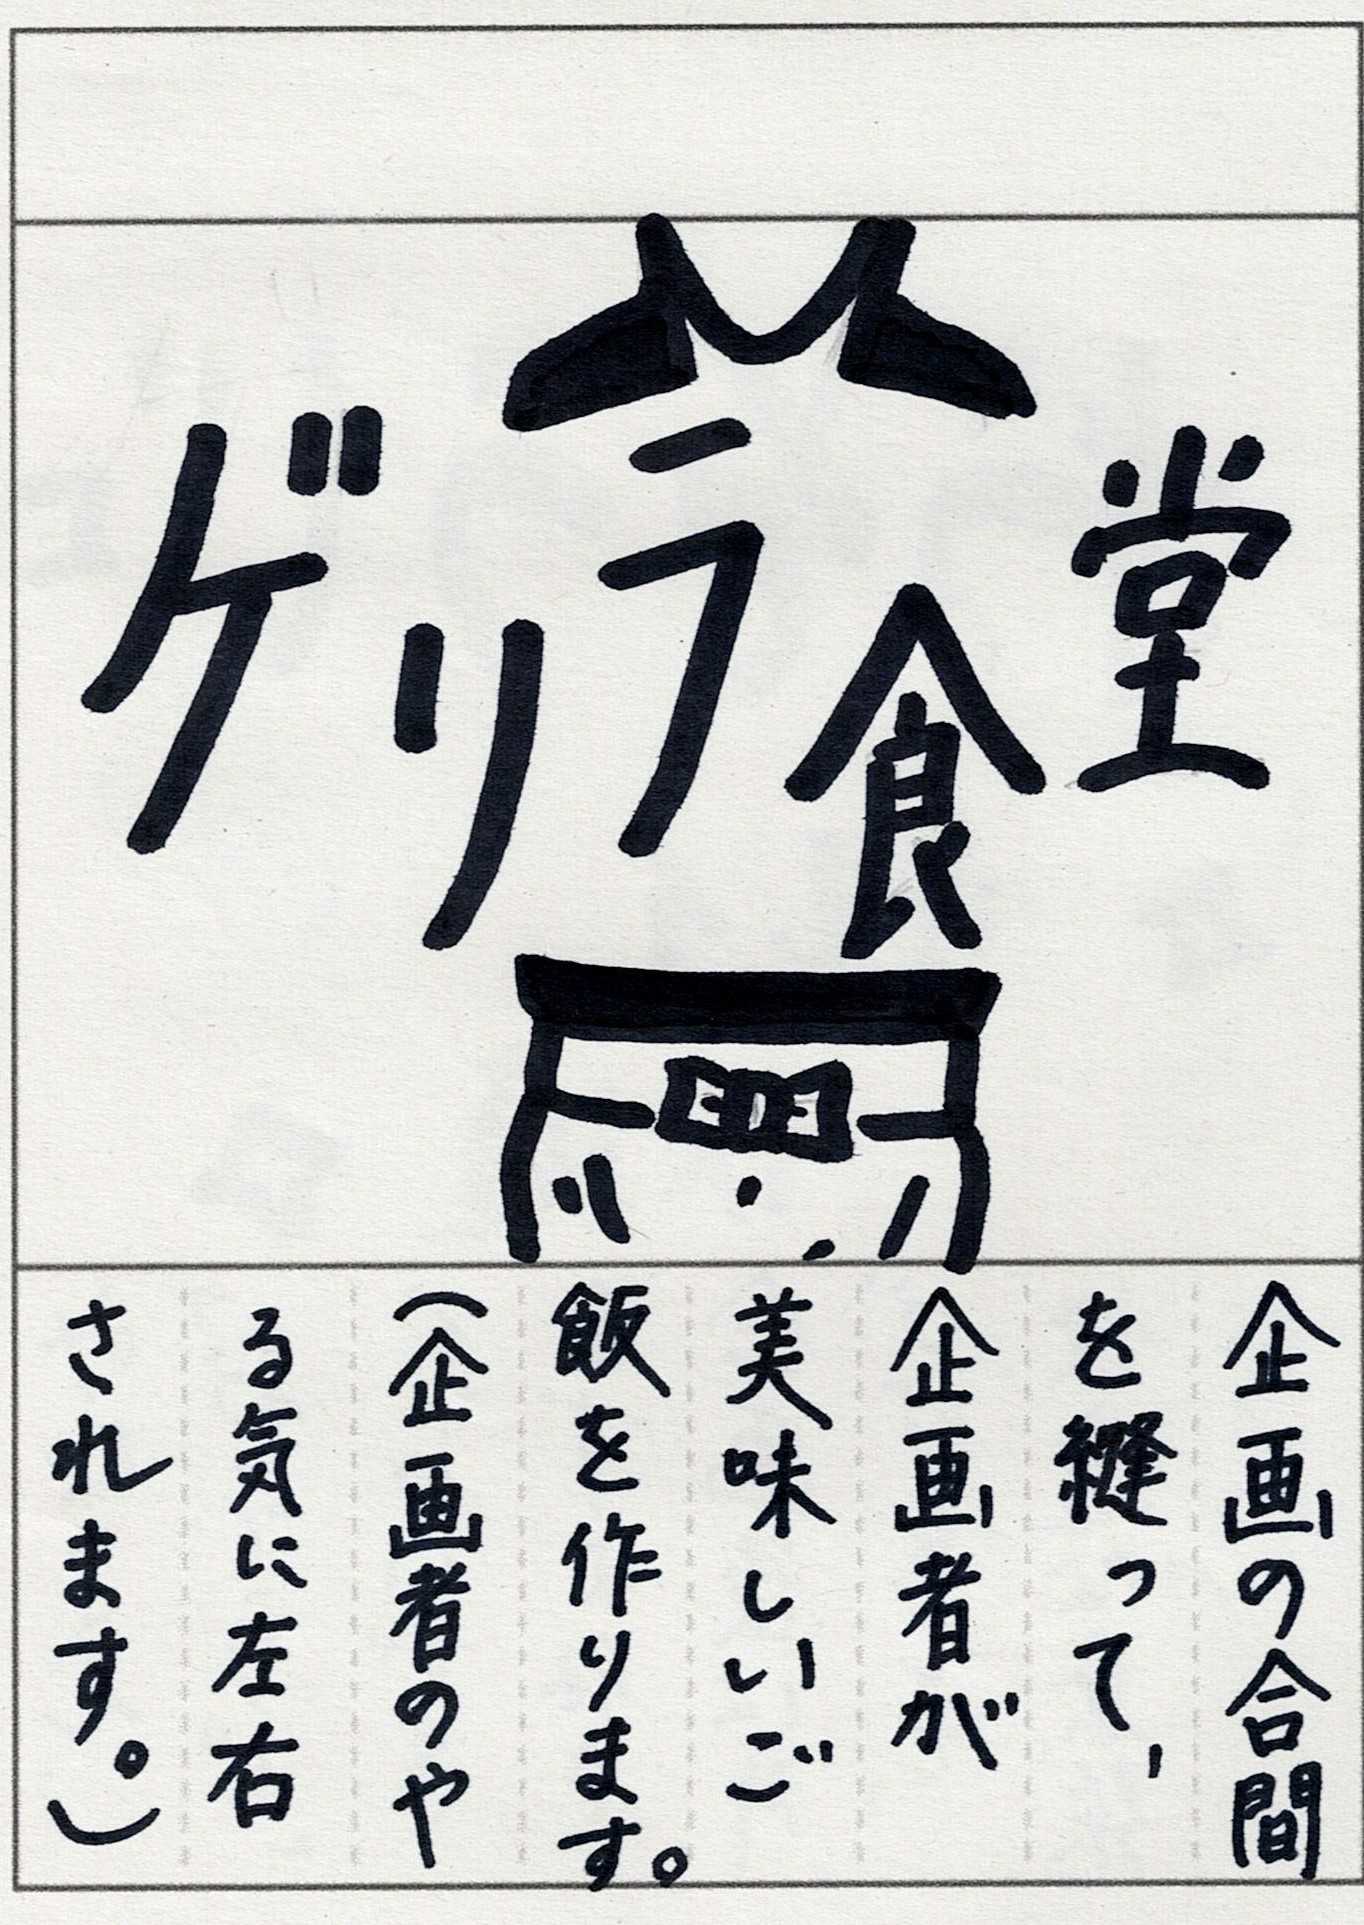 ゲリラ食堂
企画の合間
を縫って、
企画者が
美味しいご
飯を作ります。
(企画者のや
る気に左右
されます。)